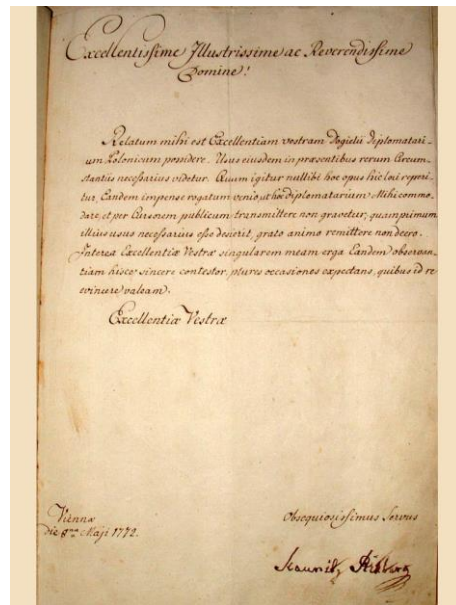 Excellentissime Illustrissime ac Reverendissime
Domine!
Relatum mihi est Excellentiam vestram Dogielii Diplomatari-
um Polonicum possidere. Usus ejusdem in præsentibus rerum Circum-
stantiis necessarius videtur. Quum igitur nullibi hoc opus hic loci reperi-
tur, Eandem impense rogatum venio, ut hoc diplomatarium Mihi commo-
dare, et per Cursorem publicum transmittere non gravetur, quam primum
illius usus necessarius esse desierit, grato animo remittere non deero.
Interea Excellentiæ Vestræ singularem meam erga Eandem observan-
tiam hisce sincere contestor, plures occasiones expectans, quibus id re
evincere valeam.
Excellentiæ Vestræ
Viennæ
die 8va Maji 1772.
Obsequiosissimus Servus